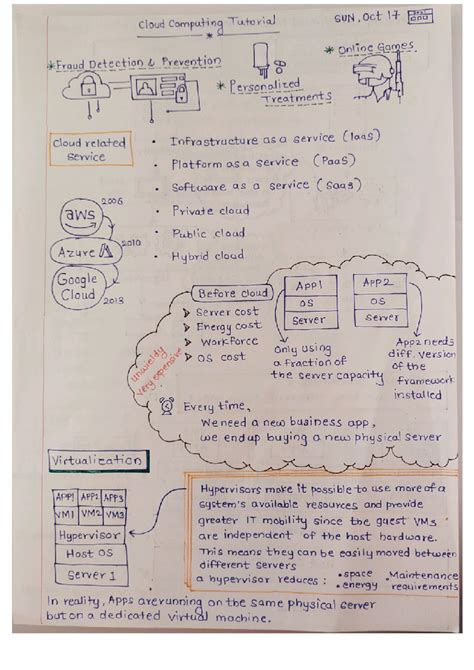 Cloud Computing Tutorial
SUN, Oct 17
* Fraud Detection & Prevention
* Personalized Treatments
* Online Games
Cloud related
service
• Infrastructure as a service (IaaS)
• Platform as a service (PaaS)
• Software as a service (SaaS)
• Private cloud
• Public cloud
• Hybrid cloud
aws
2006
Azure
2010
Google
Cloud
2013
Before cloud
Server cost
Energy cost
Workforce
OS cost
unwieldy
very expensive
App1
OS
Server
App2
OS
Server
Only using
a fraction of
the server capacity
App2 needs
diff. version
of the
framework
installed
Every time,
We need a new business app,
we end up buying a new physical server
Virtualization
APP1 APP2 APP3
VM1 VM2 VM3
Hypervisor
Host OS
Server 1
Hypervisors make it possible to use more of a
system's available resources and provide
greater IT mobility since the guest VMs
are independent of the host hardware.
This means they can be easily moved between
different servers
a hypervisor reduces : • space • Maintenance
• energy requirements
In reality, Apps are running on the same physical server
but on a dedicated virtual machine.